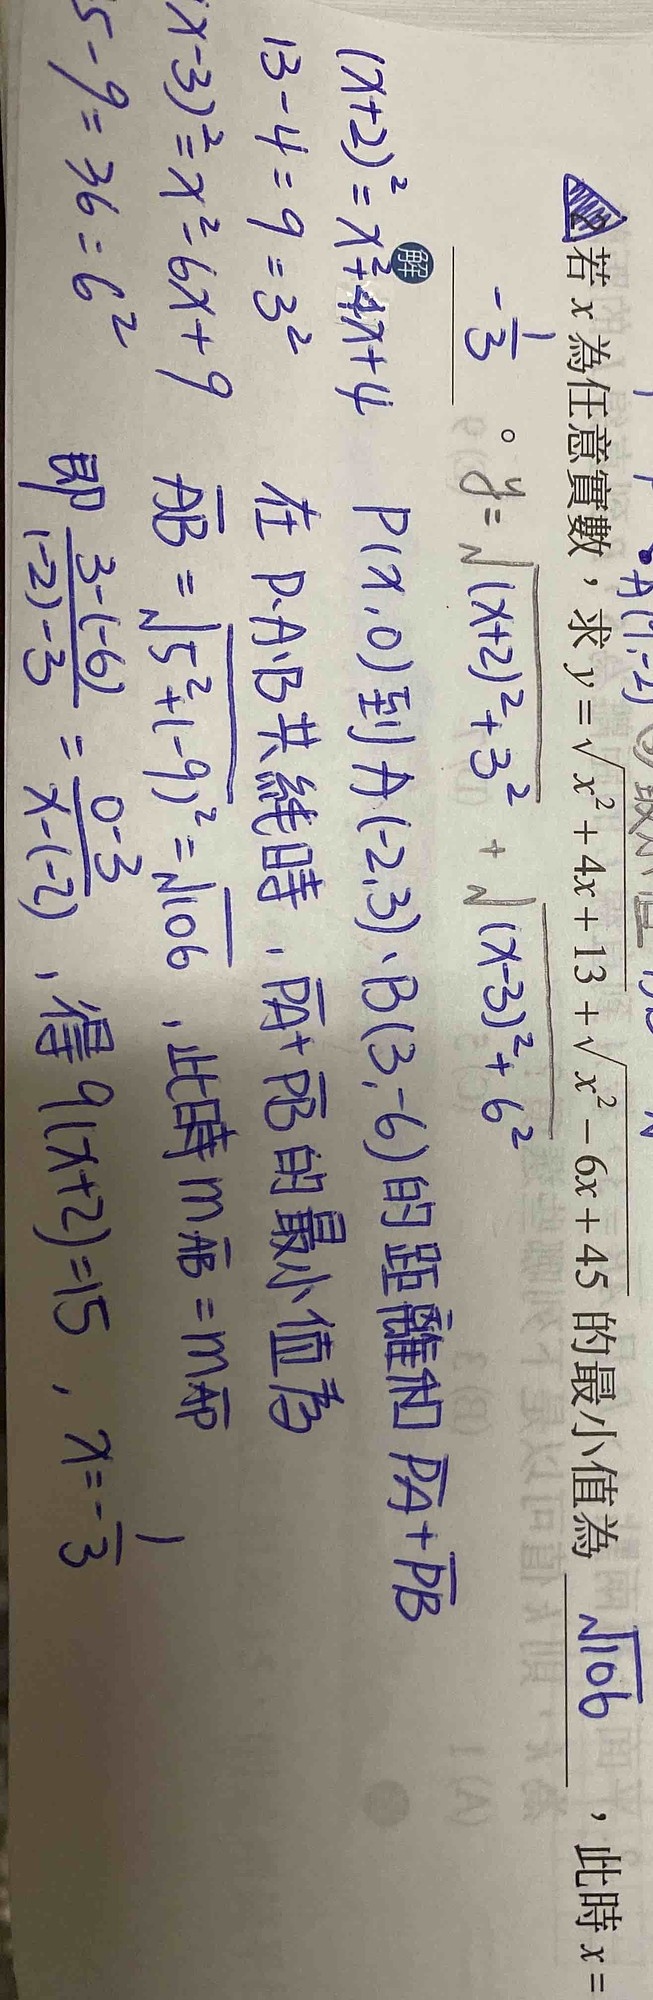 若 x 為任意實數，求 y = √(x² + 4x + 13) + √(x² − 6x + 45) 的最小值為 √106 ，此時 x =
-1/3 。 y = √((x+2)²+3²) + √((x-3)²+6²)
解
(x+2)² = x²+4x+4
13-4=9=3²
x-3)² = x²-6x+9
5-9=36=6²
P(x,0)到A(-2,3)、B(3,-6)的距離和 PA+PB
在P.A.B共線時，PA+PB的最小值為
AB = √(5²+(-9)²) = √106 ，此時 mAB = mAP
即 (3-(-6))/((-2)-3) = (0-3)/(x-(-2)) ，得 9(x+2)=15 ， x=-1/3